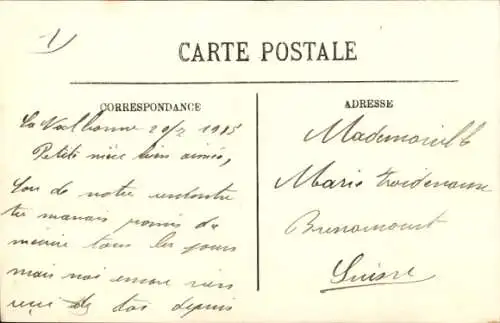 CARTE POSTALE
CORRESPONDANCE
La Valbonne 20/2 1915
Petite nièce bien aimée,
de notre rencontre
tu m'avais promis de
m'écrire tous les jours
mais rien
reçu de toi depuis
ADRESSE
Mademoiselle
Marie Froidevaux
Suisse